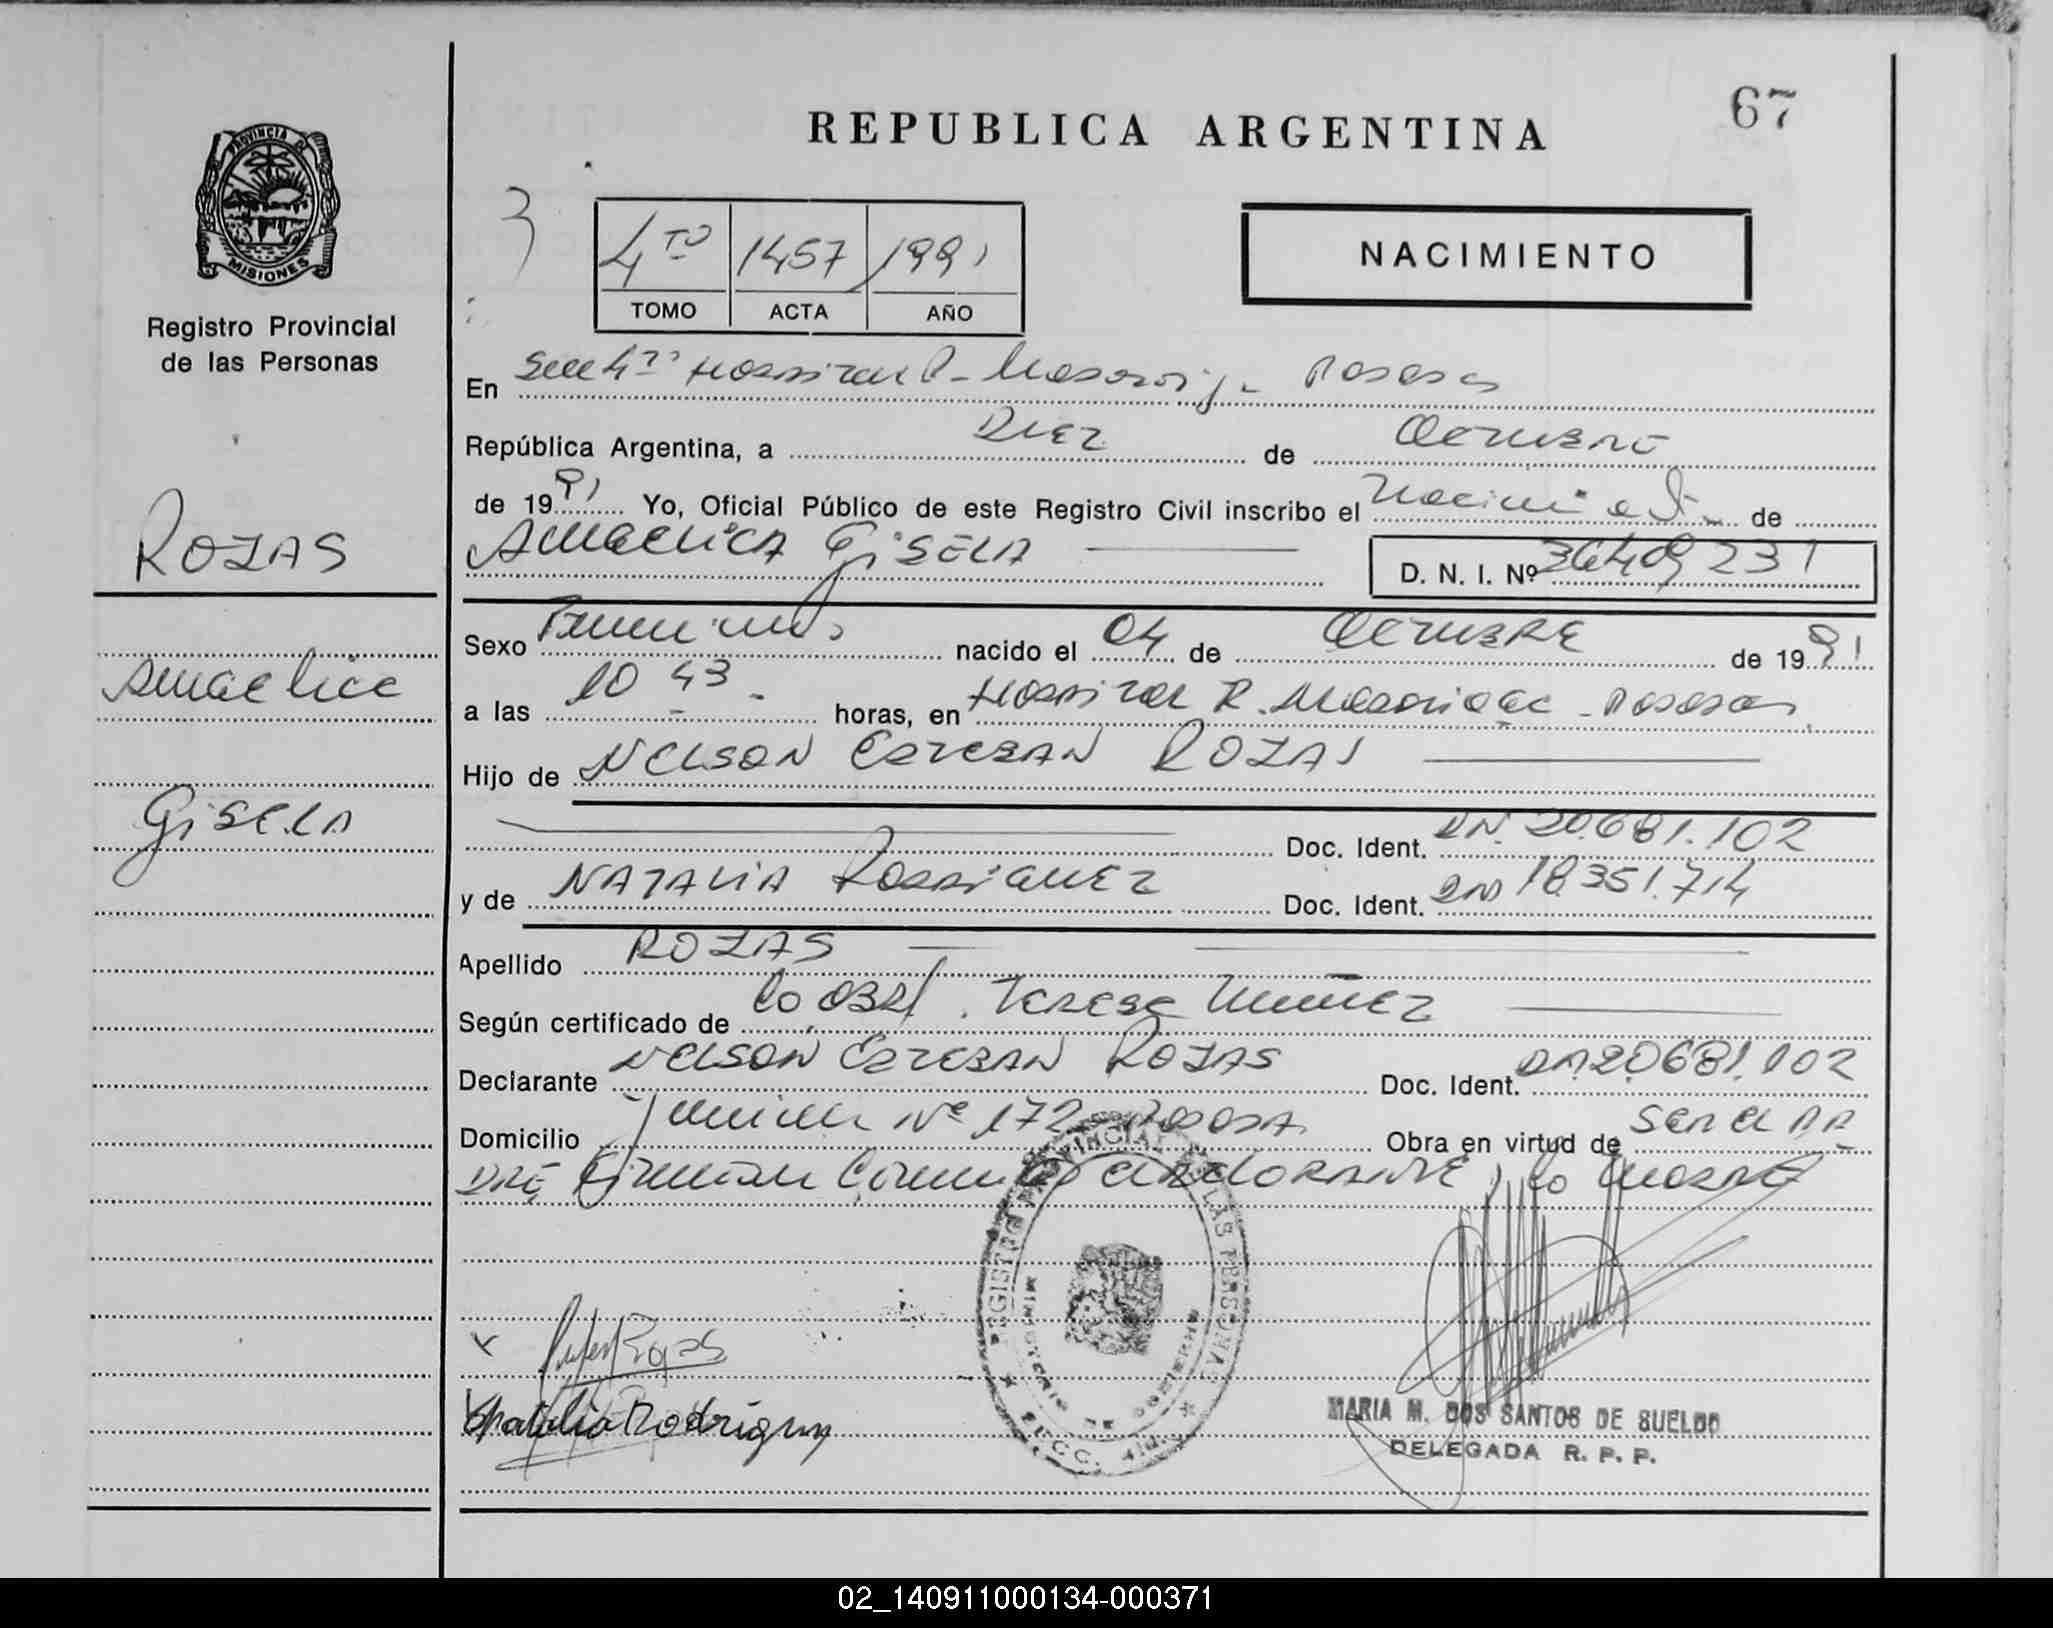 67
REPUBLICA ARGENTINA
PROVINCIA D
MISIONES
Registro Provincial
de las Personas
3
4TO 1457 1991
TOMO ACTA AÑO
NACIMIENTO
En Secc 4ta Hospital R. Madariaga - Posadas
República Argentina, a Diez de Octubre
de 1991 Yo, Oficial Público de este Registro Civil inscribo el Nacimiento de
Gisela D. N. I. Nº 36409231
ROJAS
Sexo Femenino nacido el 04 de Octubre de 1991
a las 10 43 horas, en Hospital R. Madariaga - Posadas
Gisela
Hijo de Nelson Esteban Rojas
Doc. Ident. DNI 20.681.102
y de Natalia Rodriguez Doc. Ident. DNI 18.351.714
Apellido ROJAS
Según certificado de la Obst. Teresa Nuñez
Declarante Nelson Esteban Rojas Doc. Ident. DNI 20.681.102
Domicilio Junin Nº 172 Posadas Obra en virtud de Ser el Pa
dre, Firman Conmigo el declarante y la Madre
REGISTRO PROVINCIAL DE LAS PERSONAS
MINISTERIO DE GOBIERNO
Rojas
Natalia Rodriguez
MARIA M. DOS SANTOS DE SUELDO
DELEGADA R. P. P.
02_140911000134-000371